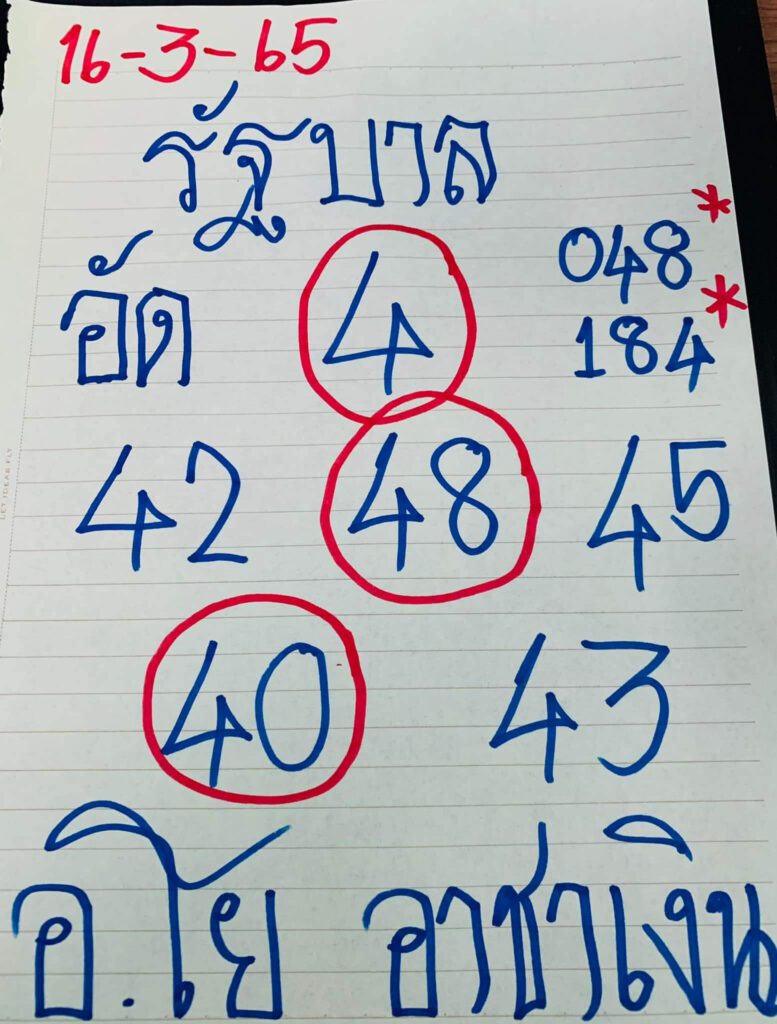 16-3-65
รัฐบาล
อัด 4 048*
184*
42 48 45
40 43
อ.โย อาชาเงิน